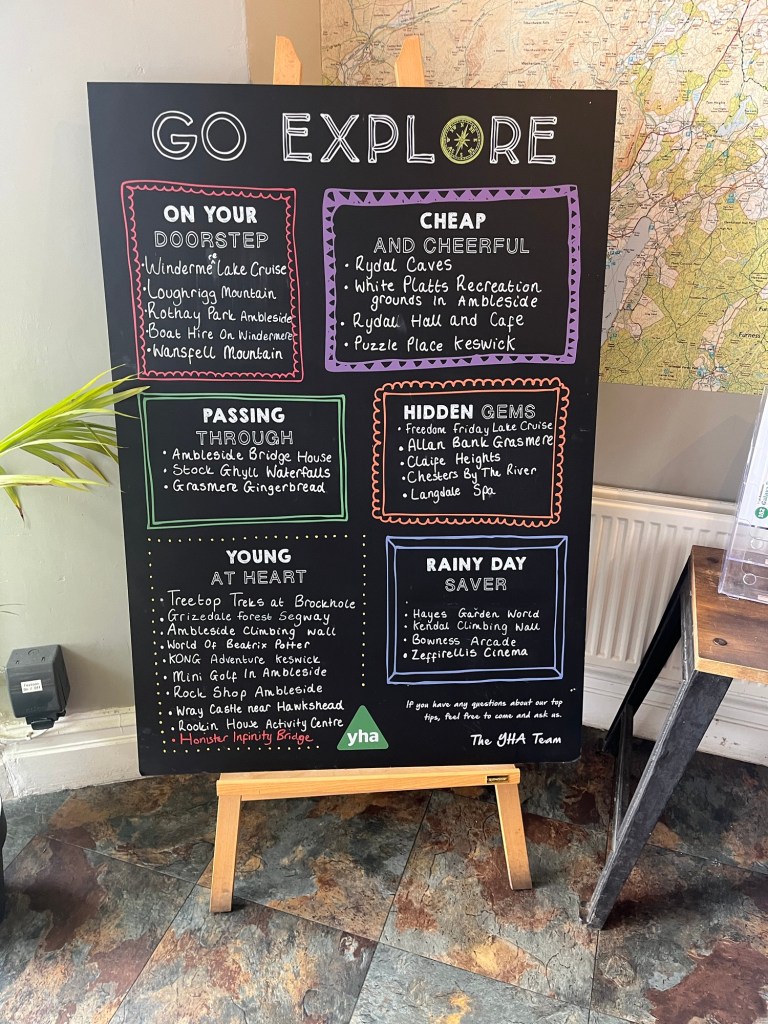 GO EXPLORE
ON YOUR
DOORSTEP
• Windermere Lake Cruise
• Loughrigg Mountain
• Rothay Park Ambleside
• Boat Hire On Windermere
• Wansfell Mountain
CHEAP
AND CHEERFUL
• Rydal Caves
• White Platts Recreation
grounds in Ambleside
• Rydal Hall and Cafe
• Puzzle Place Keswick
PASSING
THROUGH
• Ambleside Bridge House
• Stock Ghyll Waterfalls
• Grasmere Gingerbread
HIDDEN GEMS
• Freedom Friday Lake Cruise
• Allan Bank Grasmere
• Claife Heights
• Chesters By The River
• Langdale Spa
YOUNG
AT HEART
• Treetop Treks at Brockhole
• Grizedale Forest Segway
• Ambleside Climbing Wall
• World Of Beatrix Potter
• KONG Adventure Keswick
• Mini Golf In Ambleside
• Rock Shop Ambleside
• Wray Castle near Hawkshead
• Rookin House Activity Centre
• Honister Infinity Bridge
RAINY DAY
SAVER
• Hayes Garden World
• Kendal Climbing Wall
• Bowness Arcade
• Zeffirellis Cinema
If you have any questions about our top
tips, feel free to come and ask us.
The YHA Team
yha